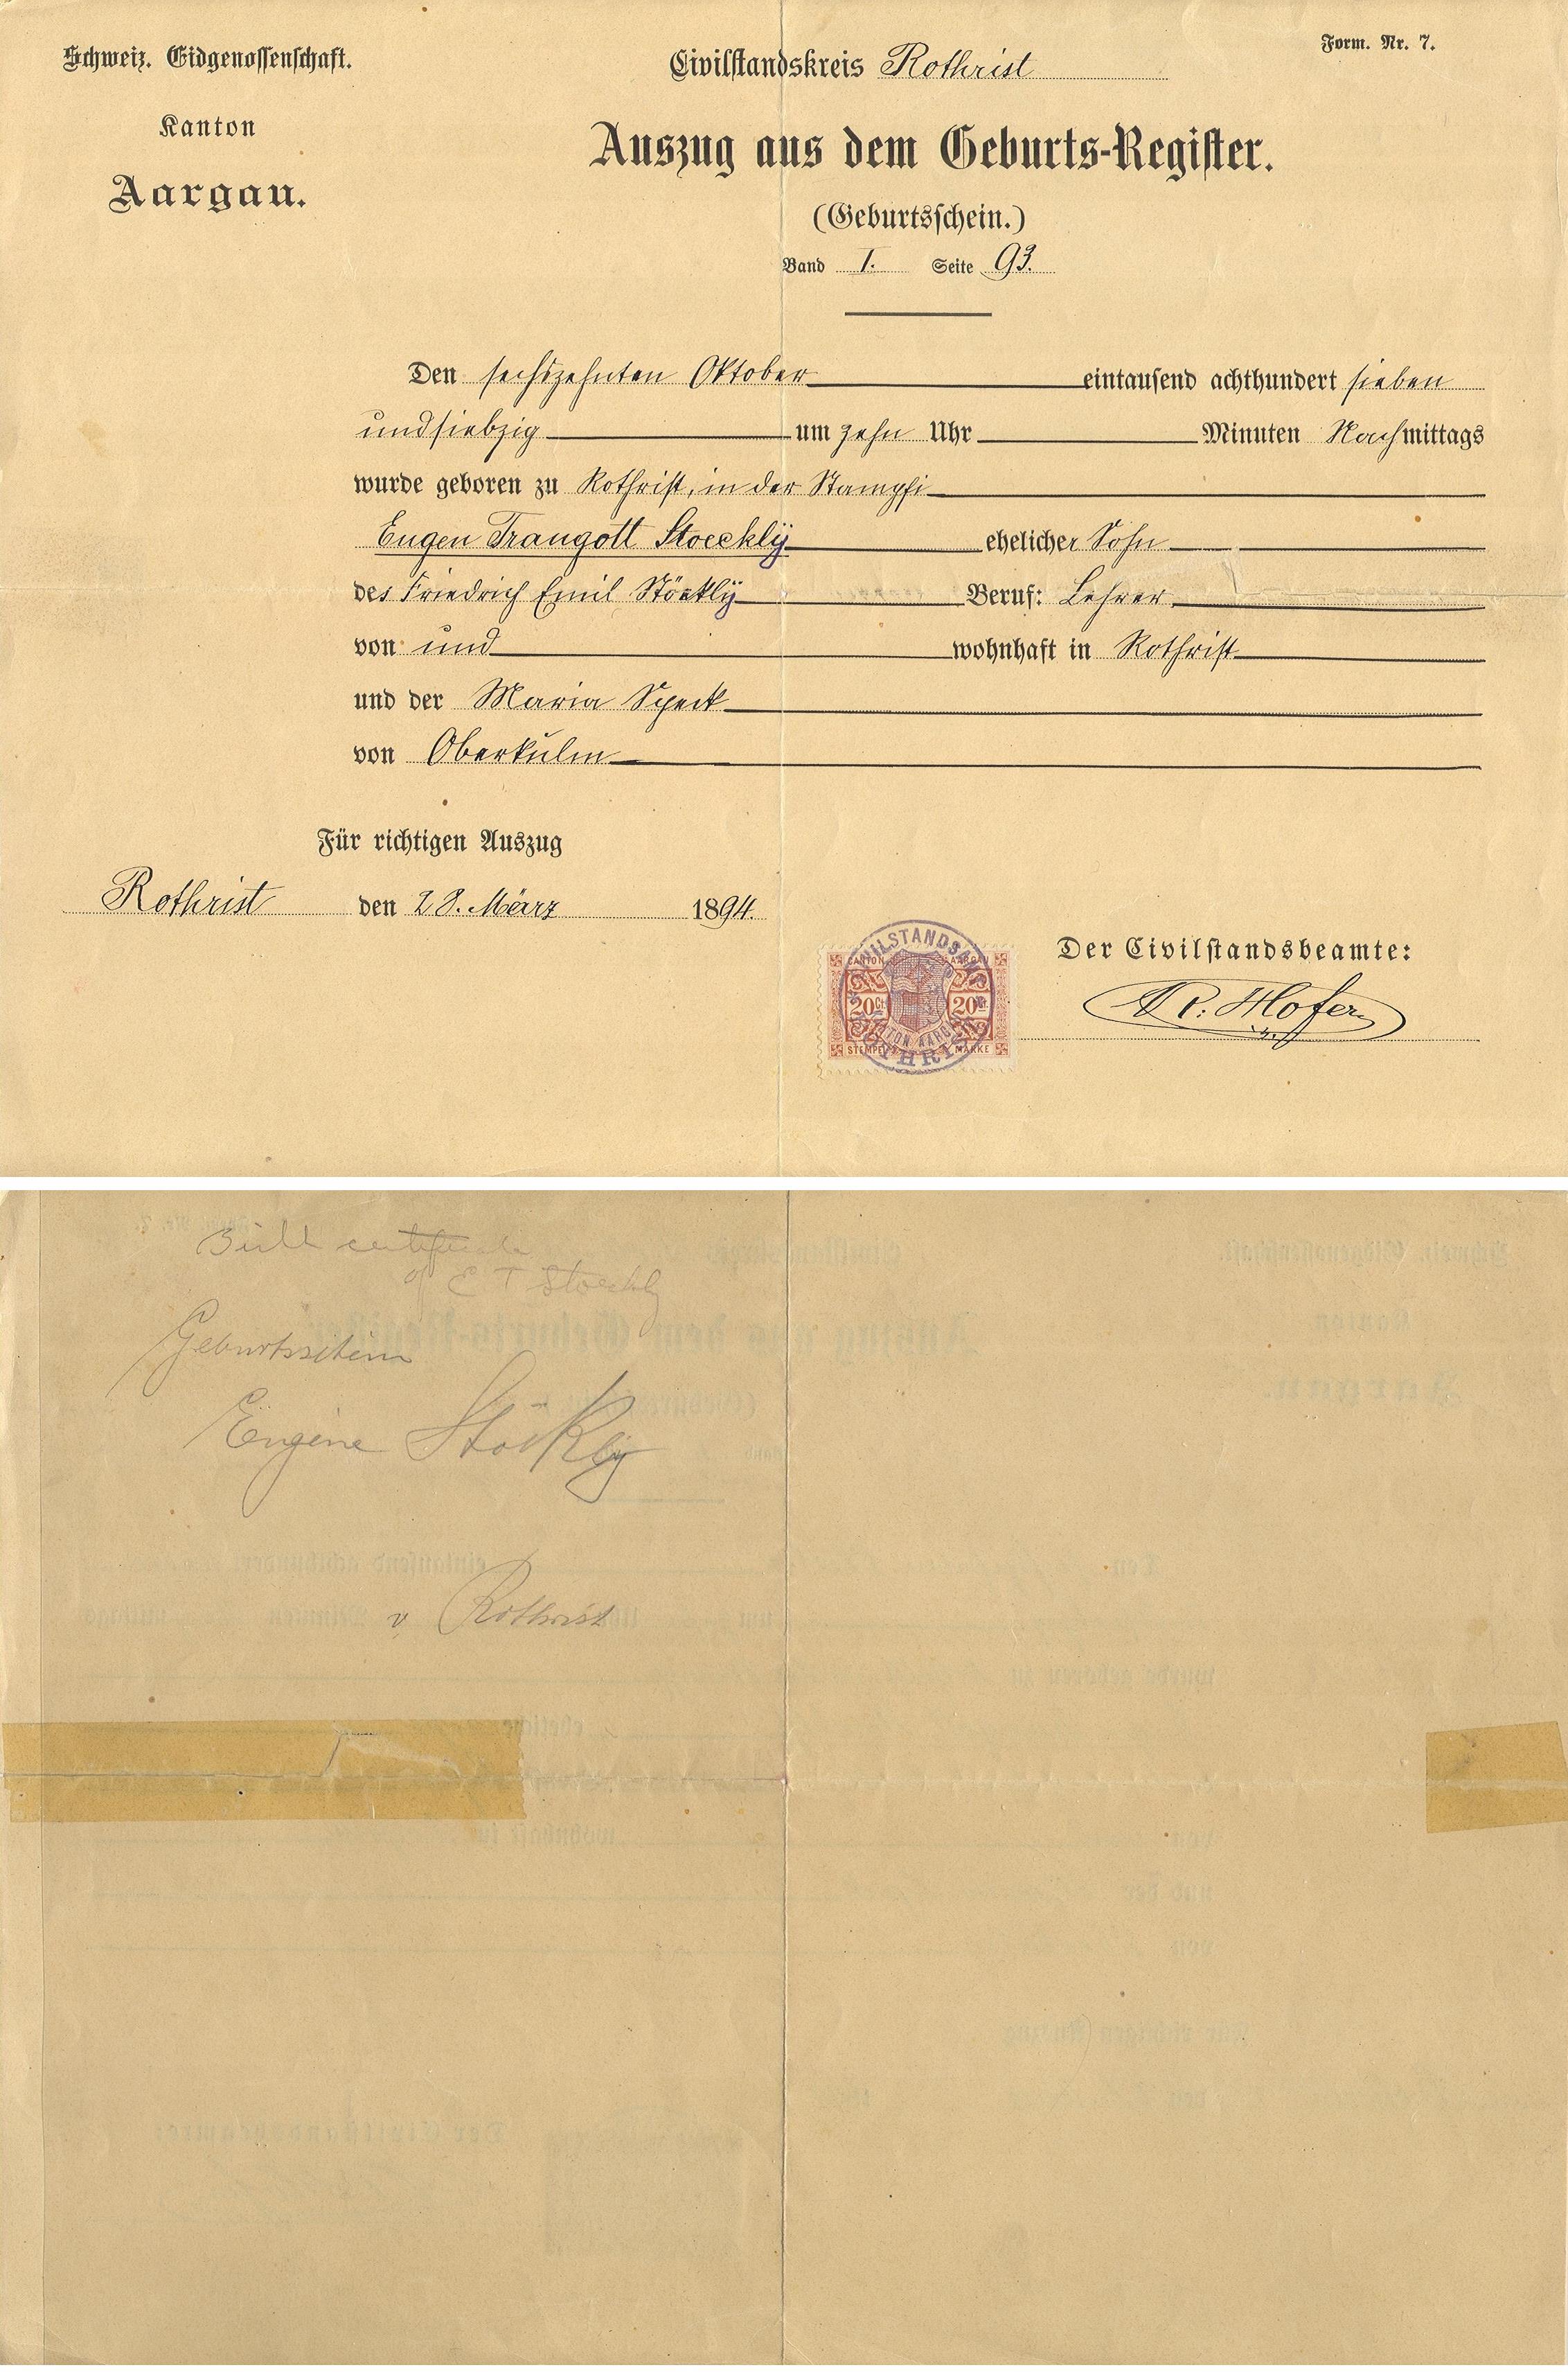 Schweiz. Eidgenossenschaft.
Kanton
Aargau.
Form. Nr. 7.
Civilstandskreis Rothrist
Auszug aus dem Geburts-Register.
(Geburtsschein.)
Band I. Seite 93.
Den sechszehnten Oktober eintausend achthundert sieben
undsiebzig um zehn Uhr Minuten Nachmittags
wurde geboren zu Rothrist, in der Stampfi
Eugen Traugott Stoecklÿ ehelicher Sohn
des Friedrich Emil Stöcklÿ Beruf: Lehrer
von und wohnhaft in Rothrist
und der Maria Speck
von Oberkulm
Für richtigen Auszug
Rothrist den 28. März 1894.
CIVILSTANDSAMT
ROTHRIST
KANTON AARGAU
CANTON AARGAU
20 Ct. 20 Ct.
STEMPEL MARKE
Der Civilstandsbeamte:
Hofer
Birth certificate
of E T Stoeckly
Geburtsschein
Eugène Stöcklÿ
v. Rothrist